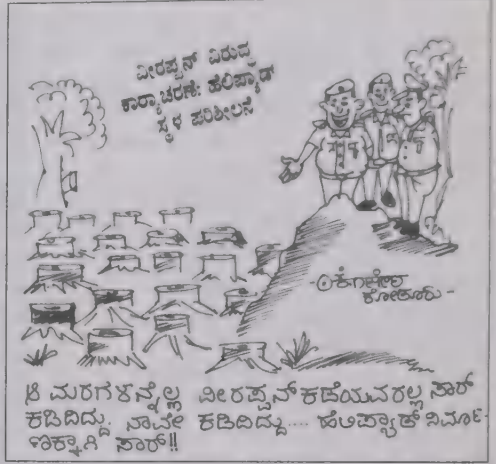 ವೀರಪ್ಪನ್ ವಿರುದ್ಧ
ಕಾರ್ಯಾಚರಣೆ: ಹೆಲಿಪ್ಯಾಡ್
ಸ್ಥಳ ಪರಿಶೀಲನೆ
ಕೋಡೂರು
ಆ ಮರಗಳನ್ನೆಲ್ಲ ವೀರಪ್ಪನ್ ಕಡೆಯವರಲ್ಲ ಸಾರ್
ಕಡಿದಿದ್ದು. ನಾವೇ ಕಡಿದಿದ್ದು.... ಹೆಲಿಪ್ಯಾಡ್ ನಿರ್ಮಾ-
ಣಕ್ಕಾಗಿ ಸಾರ್!!